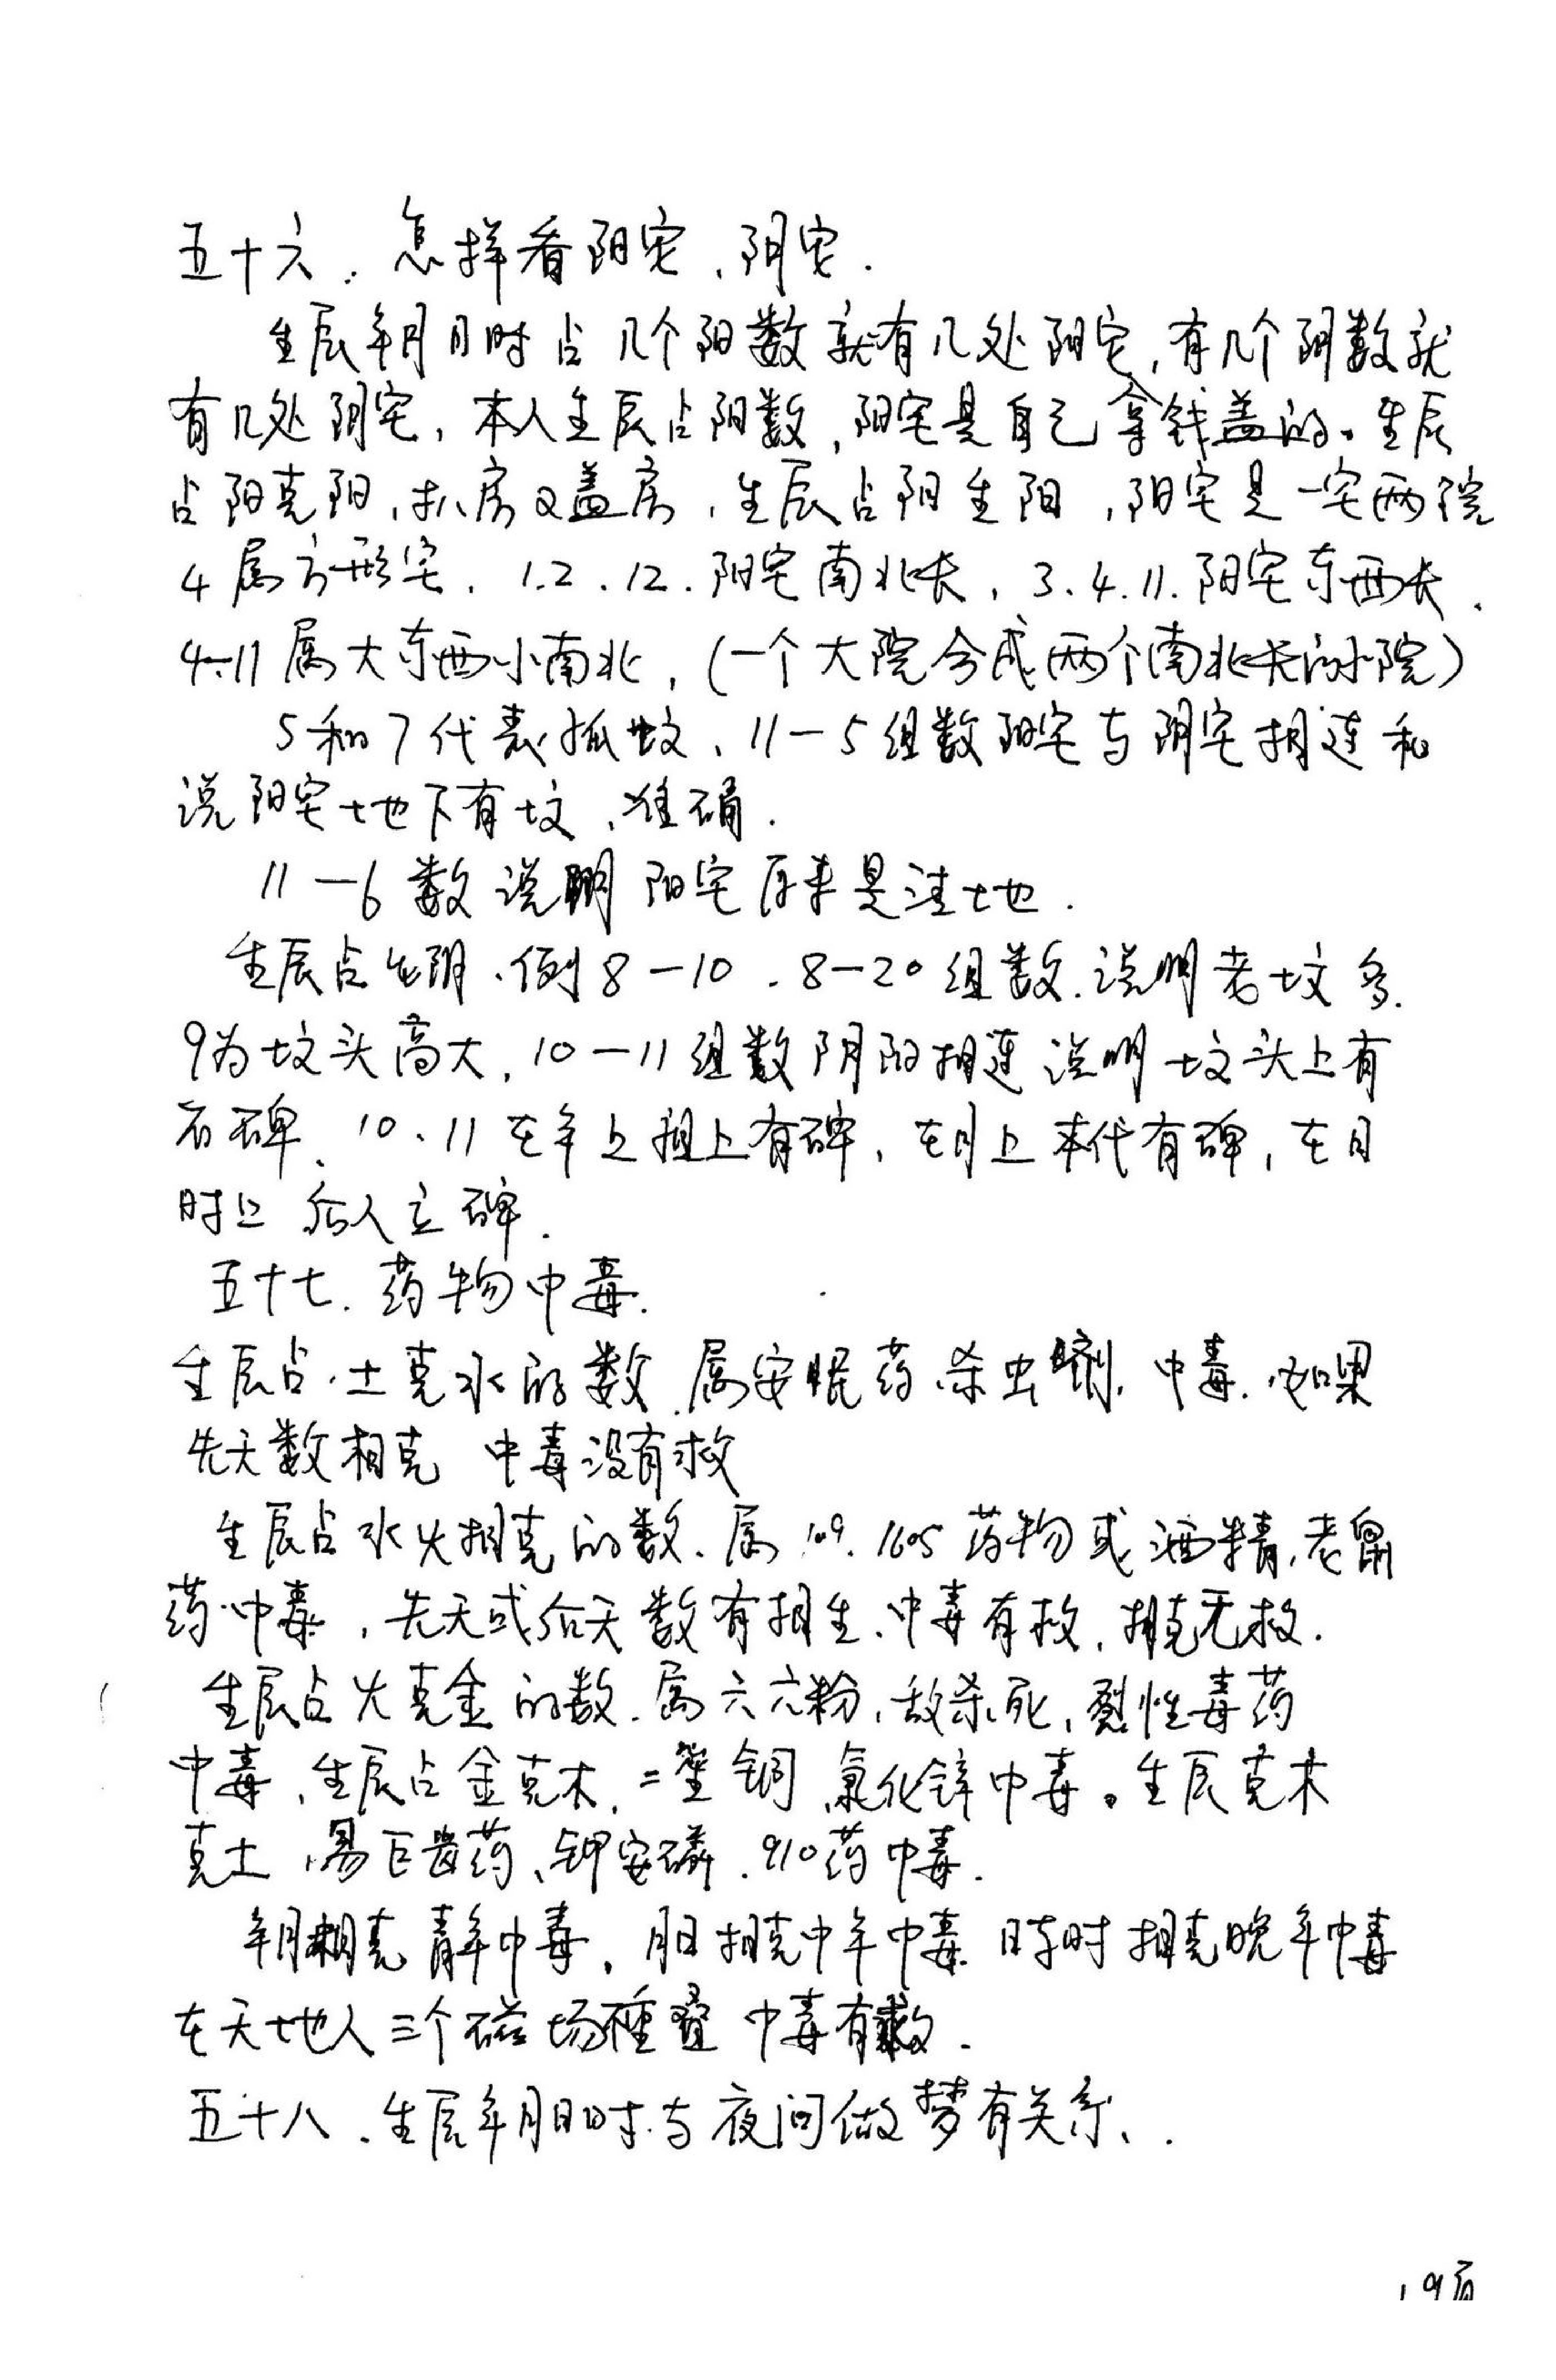 五十六、怎样看阳宅、阴宅.
生辰年月日时占几个阳数就有几处阳宅,有几个阴数就
有几处阴宅,本人生辰占阳数,阳宅是自己拿钱盖的。生辰
占阳克阳,扒房又盖房,生辰占阳生阳,阳宅是一宅两院
4属方形宅.1.2.12.阳宅南北长,3.4.11.阳宅东西长.
4-11属大东西小南北,(一个大院分成两个南北长的小院)
5和7代表孤坟、11-5组数阳宅与阴宅相连和
说阳宅地下有坟、准确.
11-6数说明阳宅原来是洼地.
生辰占生阴、例8-10.8-20组数.说明老坟多.
9为坟头高大,10-11组数阴阳相连说明坟头上有
石碑、10、11在年上祖上有碑,在月上本代有碑,在日
时上后人立碑.
五十七.药物中毒.
生辰占土克水的数.属安眠药.杀虫剂.中毒.如果
先天数相克 中毒没有救
生辰占水火相克的数、属109.1605药物或酒精,老鼠
药中毒,先天或后天数有相生、中毒有救,相克无救.
生辰占火克金的数.属六六粉,敌杀死,烈性毒药
中毒、生辰占金克木,二 铜、氯化锌中毒。生辰克木
克土,易巴 药、钾安磷.910药中毒.
年月相克青年中毒,月日相克中年中毒 日与时相克晚年中毒
在天地人三个磁场重叠 中毒有救.
五十八、生辰年月日时与夜间做梦有关系、.
19页